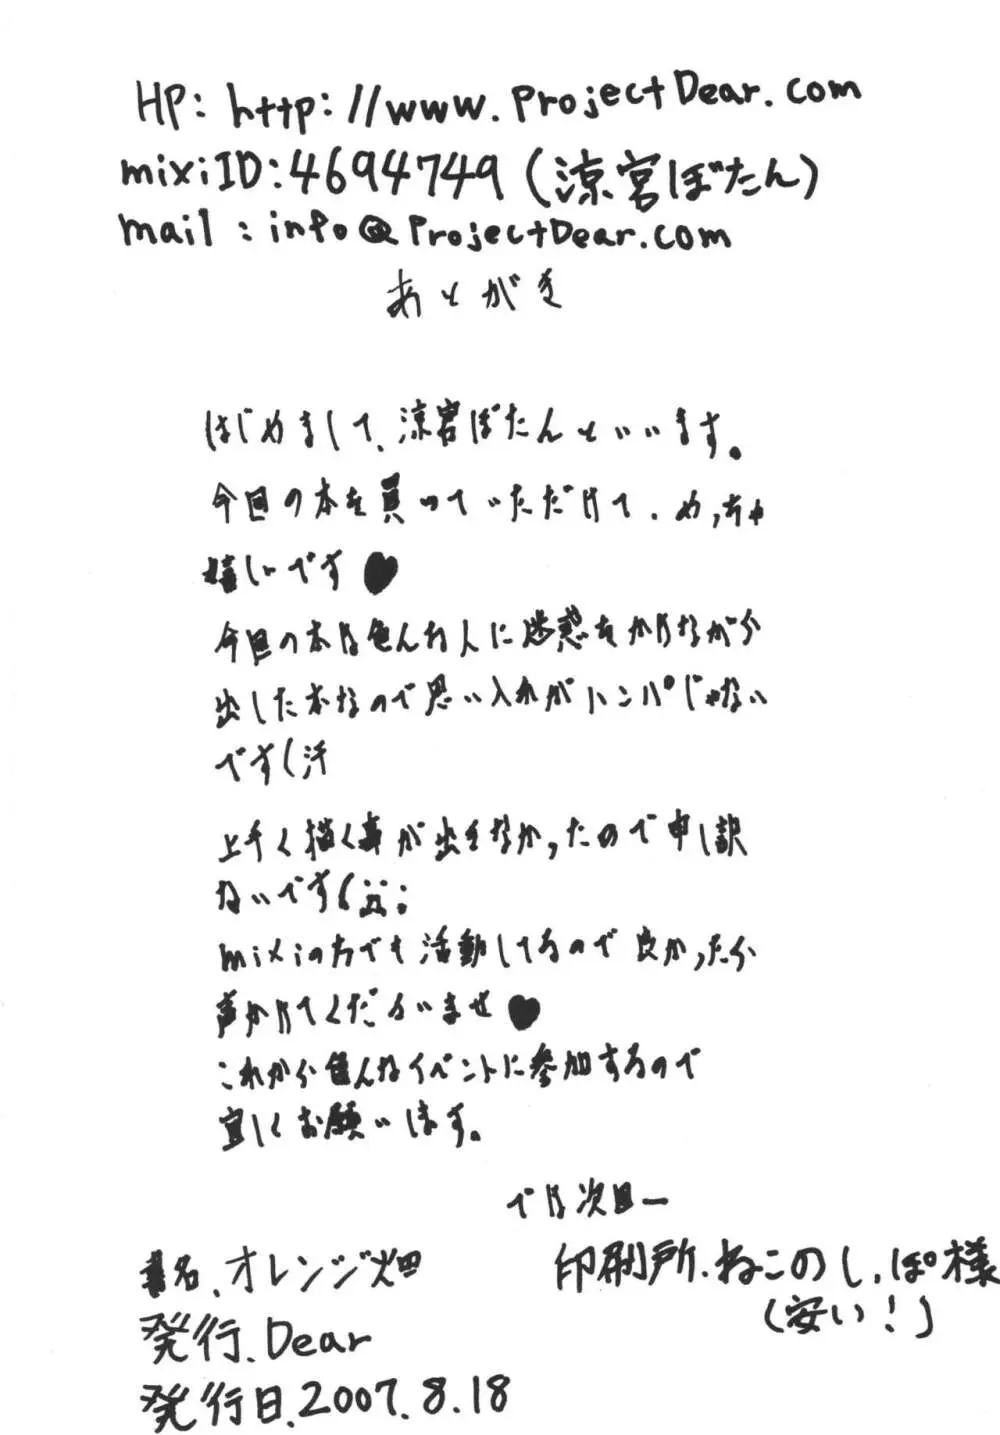 HP: http://www.ProjectDear.com
mixiID:4694749(涼宮ぼたん)
mail:info@ProjectDear.com
あとがき
はじめまして、涼宮ぼたんといいます。
今回の本を買っていただけて、めっちゃ
嬉しいです♥
今回の本は色んな人に迷惑をかけながら
出した本なので思い入れがハンパじゃない
です(汗
上手く描く事が出きなかったので申し訳
ないです(;
mixiの方でも活動してるので良かったら
声かけてくださいませ♥
これから色んなイベントに参加するので
宜しくお願いします。
では次回ー
書名.オレンジ畑
発行.Dear
発行日.2007.8.18
印刷所.ねこのしっぽ様
(安い!)